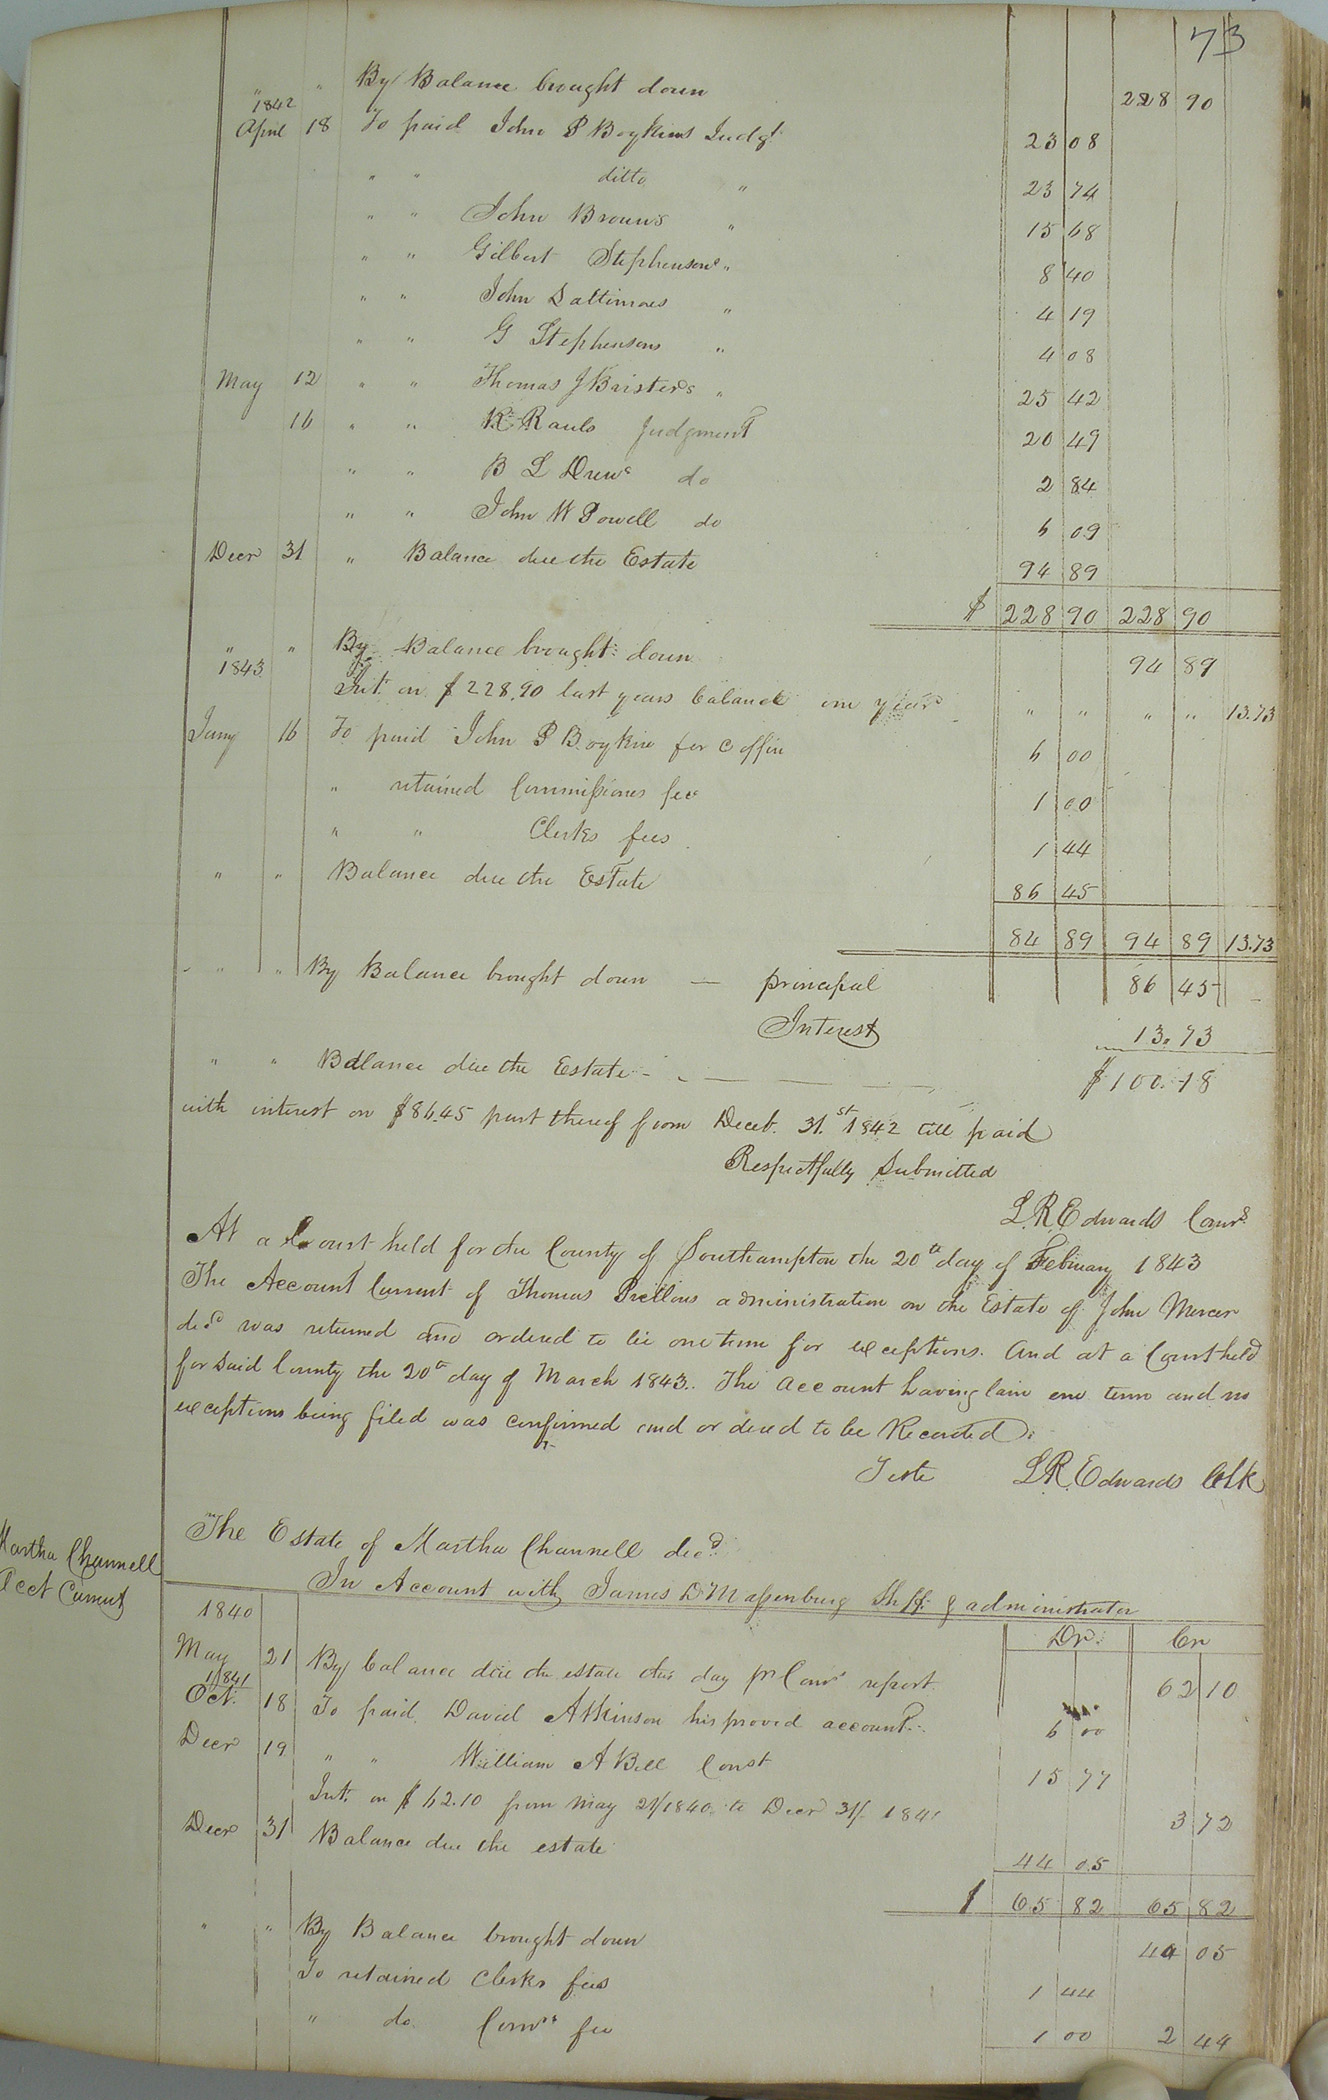 73
" " By Balance brought down 228 90
1842
April 18 To paid John P Boykins Judgt 23 08
" " ditto " 23 74
" " John Browns " 15 68
" " Gilbert Stephensons " 8 40
" " John Daltimores " 4 19
" " G Stephensons " 4 08
May 12 " " Thomas J Bristers " 25 42
16 " " R Rauls Judgment 20 49
" " B L Drews do 2 84
" " John W Powell do 6 09
Decr 31 " Balance due the Estate 94 89
$ 228 90 228 90
" " By Balance brought down 94 89
1843
Int. on $228.90 last years balance one year " " " " 13.73
Jany 16 To paid John P Boykin for Coffin 6 00
" retained Commissioners fee 1 00
" " Clerks fees 1 44
" " Balance due the Estate 86 45
84 89 94 89 13.73
" " " By Balance brought down — principal 86 45
Interest 13.73
" " Balance due the Estate $100.18
with interest on $86.45 part thereof from Deceb. 31.st 1842 till paid
Respectfully Submitted
L.R. Edwards Comr
At a Court held for the County of Southampton the 20th day of February 1843
The Account Current of Thomas Pretlows administration on the Estate of John Mercer
decd was returned and ordered to lie one term for exceptions. And at a Court held
for said County the 20th day of March 1843. The Account having lain one term and no
exceptions being filed was confirmed and ordered to be Recorded.
Teste L.R. Edwards Clk
The Estate of Martha Channell decd
Martha Channell
Acct Current
In Account with James D Massenburg Shff. & administrator
1840 Dr. Cr
May 21 By balance due the estate this day pr Comr report 62 10
1841
Oct. 18 To paid David Atkinson his proved account 6 00
Decr 19 " " William A Bell Const 15 77
Int. on $62.10 from May 21/1840 to Decr 31/ 1841 3 72
Decr 31 Balance due the estate 44 05
$ 65 82 65 82
" " By Balance brought down 44 05
To retained Clerks fees 1 44
" do. Comrs fee 1 00 2 44